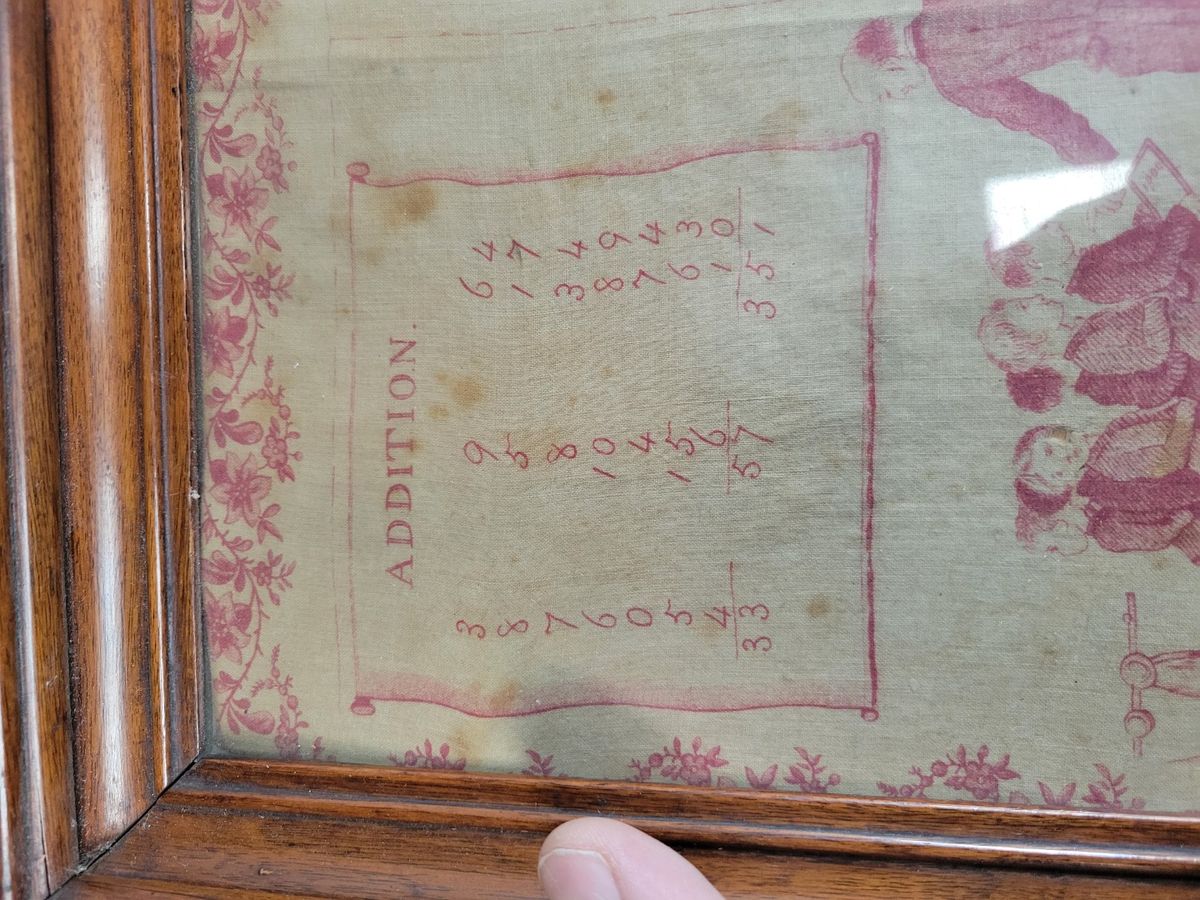 ADDITION.
3 9 64
8 5 17
7 8 34
6 10 89
0 4 74
5 15 63
4 6 10
33 57 351